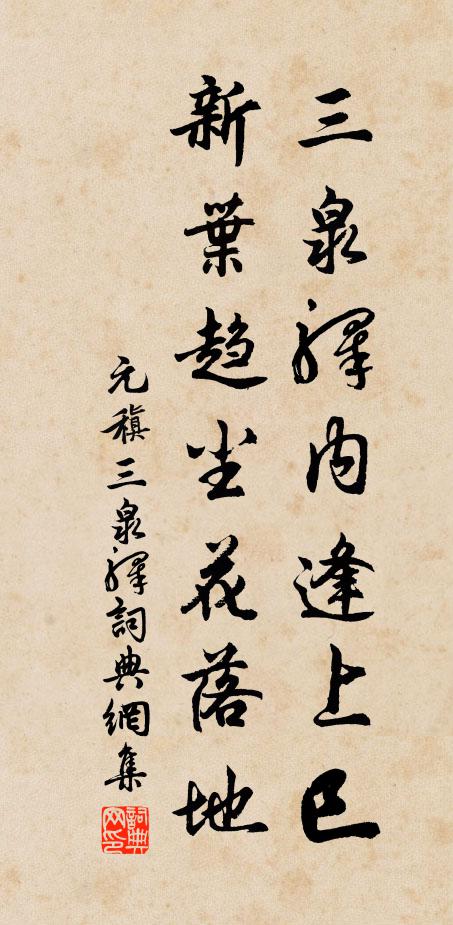 三泉驛内逢上巳
新葉趨尘花落地
元稹三泉驛詞典網集
詞典网印